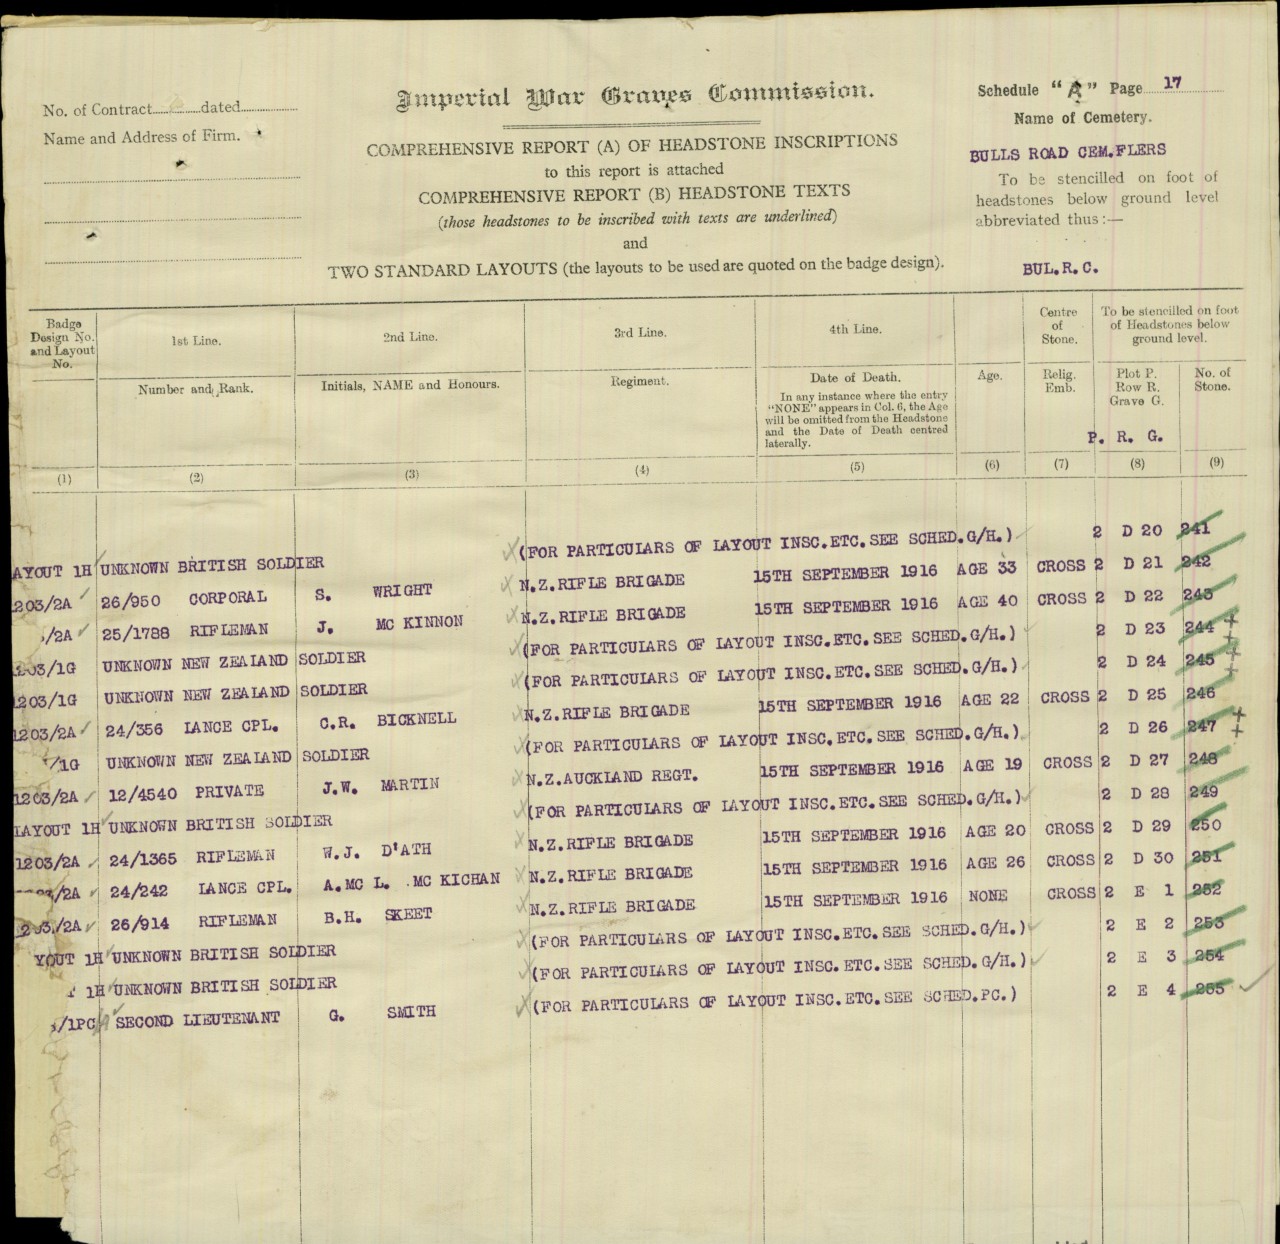 No. of Contract dated
Name and Address of Firm.
Imperial War Graves Commission.
COMPREHENSIVE REPORT (A) OF HEADSTONE INSCRIPTIONS
to this report is attached
COMPREHENSIVE REPORT (B) HEADSTONE TEXTS
(those headstones to be inscribed with texts are underlined)
and
TWO STANDARD LAYOUTS (the layouts to be used are quoted on the badge design).
Schedule "A" Page 17
Name of Cemetery.
BULLS ROAD CEM.FLERS
To be stencilled on foot of
headstones below ground level
abbreviated thus :—
BUL.R.C.
Badge Design No. and Layout No.
1st Line.
2nd Line.
3rd Line.
4th Line.
Centre of Stone.
To be stencilled on foot of Headstones below ground level.
Number and Rank.
Initials, NAME and Honours.
Regiment.
Date of Death.
In any instance where the entry "NONE" appears in Col. 6, the Age will be omitted from the Headstone and the Date of Death centred laterally.
Age.
Relig. Emb.
Plot P. Row R. Grave G.
No. of Stone.
P. R. G.
(1) (2) (3) (4) (5) (6) (7) (8) (9)
AYOUT 1H UNKNOWN BRITISH SOLDIER (FOR PARTICULARS OF LAYOUT INSC.ETC.SEE SCHED.G/H.) 2 D 20 241
1203/2A 26/950 CORPORAL S. WRIGHT N.Z.RIFLE BRIGADE 15TH SEPTEMBER 1916 AGE 33 CROSS 2 D 21 242
/2A 25/1788 RIFLEMAN J. MC KINNON N.Z.RIFLE BRIGADE 15TH SEPTEMBER 1916 AGE 40 CROSS 2 D 22 243
1203/1G UNKNOWN NEW ZEALAND SOLDIER (FOR PARTICULARS OF LAYOUT INSC.ETC.SEE SCHED.G/H.) 2 D 23 244
1203/1G UNKNOWN NEW ZEALAND SOLDIER (FOR PARTICULARS OF LAYOUT INSC.ETC.SEE SCHED.G/H.) 2 D 24 245
1203/2A 24/356 LANCE CPL. C.R. BICKNELL N.Z.RIFLE BRIGADE 15TH SEPTEMBER 1916 AGE 22 CROSS 2 D 25 246
/1G UNKNOWN NEW ZEALAND SOLDIER (FOR PARTICULARS OF LAYOUT INSC.ETC.SEE SCHED.G/H.) 2 D 26 247
1203/2A 12/4540 PRIVATE J.W. MARTIN N.Z.AUCKLAND REGT. 15TH SEPTEMBER 1916 AGE 19 CROSS 2 D 27 248
LAYOUT 1H UNKNOWN BRITISH SOLDIER (FOR PARTICULARS OF LAYOUT INSC.ETC.SEE SCHED.G/H.) 2 D 28 249
1203/2A 24/1365 RIFLEMAN W.J. D'ATH N.Z.RIFLE BRIGADE 15TH SEPTEMBER 1916 AGE 20 CROSS 2 D 29 250
/2A 24/242 LANCE CPL. A.MC L. MC KICHAN N.Z.RIFLE BRIGADE 15TH SEPTEMBER 1916 AGE 26 CROSS 2 D 30 251
1203/2A 26/914 RIFLEMAN B.H. SKEET N.Z.RIFLE BRIGADE 15TH SEPTEMBER 1916 NONE CROSS 2 E 1 252
YOUT 1H UNKNOWN BRITISH SOLDIER (FOR PARTICULARS OF LAYOUT INSC.ETC.SEE SCHED.G/H.) 2 E 2 253
1H UNKNOWN BRITISH SOLDIER (FOR PARTICULARS OF LAYOUT INSC.ETC.SEE SCHED.G/H.) 2 E 3 254
/1PC SECOND LIEUTENANT G. SMITH (FOR PARTICULARS OF LAYOUT INSC.ETC.SEE SCHED.PC.) 2 E 4 255